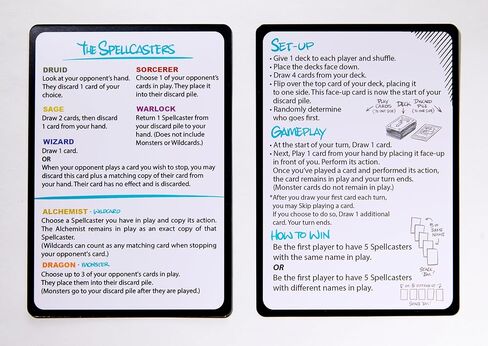 THE SPELLCASTERS
DRUID
Look at your opponent's hand.
They discard 1 card of your
choice.
SORCERER
Choose 1 of your opponent's
cards in play. They place it
into their discard pile.
SAGE
Draw 2 cards, then discard
1 card from your hand.
WARLOCK
Return 1 Spellcaster from
your discard pile to your
hand. (Does not include
Monsters or Wildcards.)
WIZARD
Draw 1 card.
OR
When your opponent plays a card you wish to stop, you may
discard this card plus a matching copy of their card from
your hand. Their card has no effect and is discarded.
ALCHEMIST - WILDCARD
Choose a Spellcaster you have in play and copy its action.
The Alchemist remains in play as an exact copy of that
Spellcaster.
(Wildcards can count as any matching card when stopping
your opponent's card.)
DRAGON - MONSTER
Choose up to 3 of your opponent's cards in play.
They place them into their discard pile.
(Monsters go to your discard pile after they are played.)
SET-UP
• Give 1 deck to each player and shuffle.
• Place the decks face down.
• Draw 4 cards from your deck.
• Flip over the top card of your deck, placing it
to one side. This face-up card is now the start of your
discard pile.
• Randomly determine
who goes first.
PLAY
CARDS
(TO ONE SIDE)
DECK
DISCARD
PILE
(TO ONE SIDE)
GAMEPLAY
• At the start of your turn, Draw 1 card.
• Next, Play 1 card from your hand by placing it face-up
in front of you. Perform its action.
Once you've played a card and performed its action,
the card remains in play and your turn ends.
(Monster cards do not remain in play.)
*After you draw your first card each turn,
you may Skip playing a card.
If you choose to do so, Draw 1 additional
card. Your turn ends.
HOW TO WIN
Be the first player to have 5 Spellcasters
with the same name in play.
OR
Be the first player to have 5 Spellcasters
with different names in play.